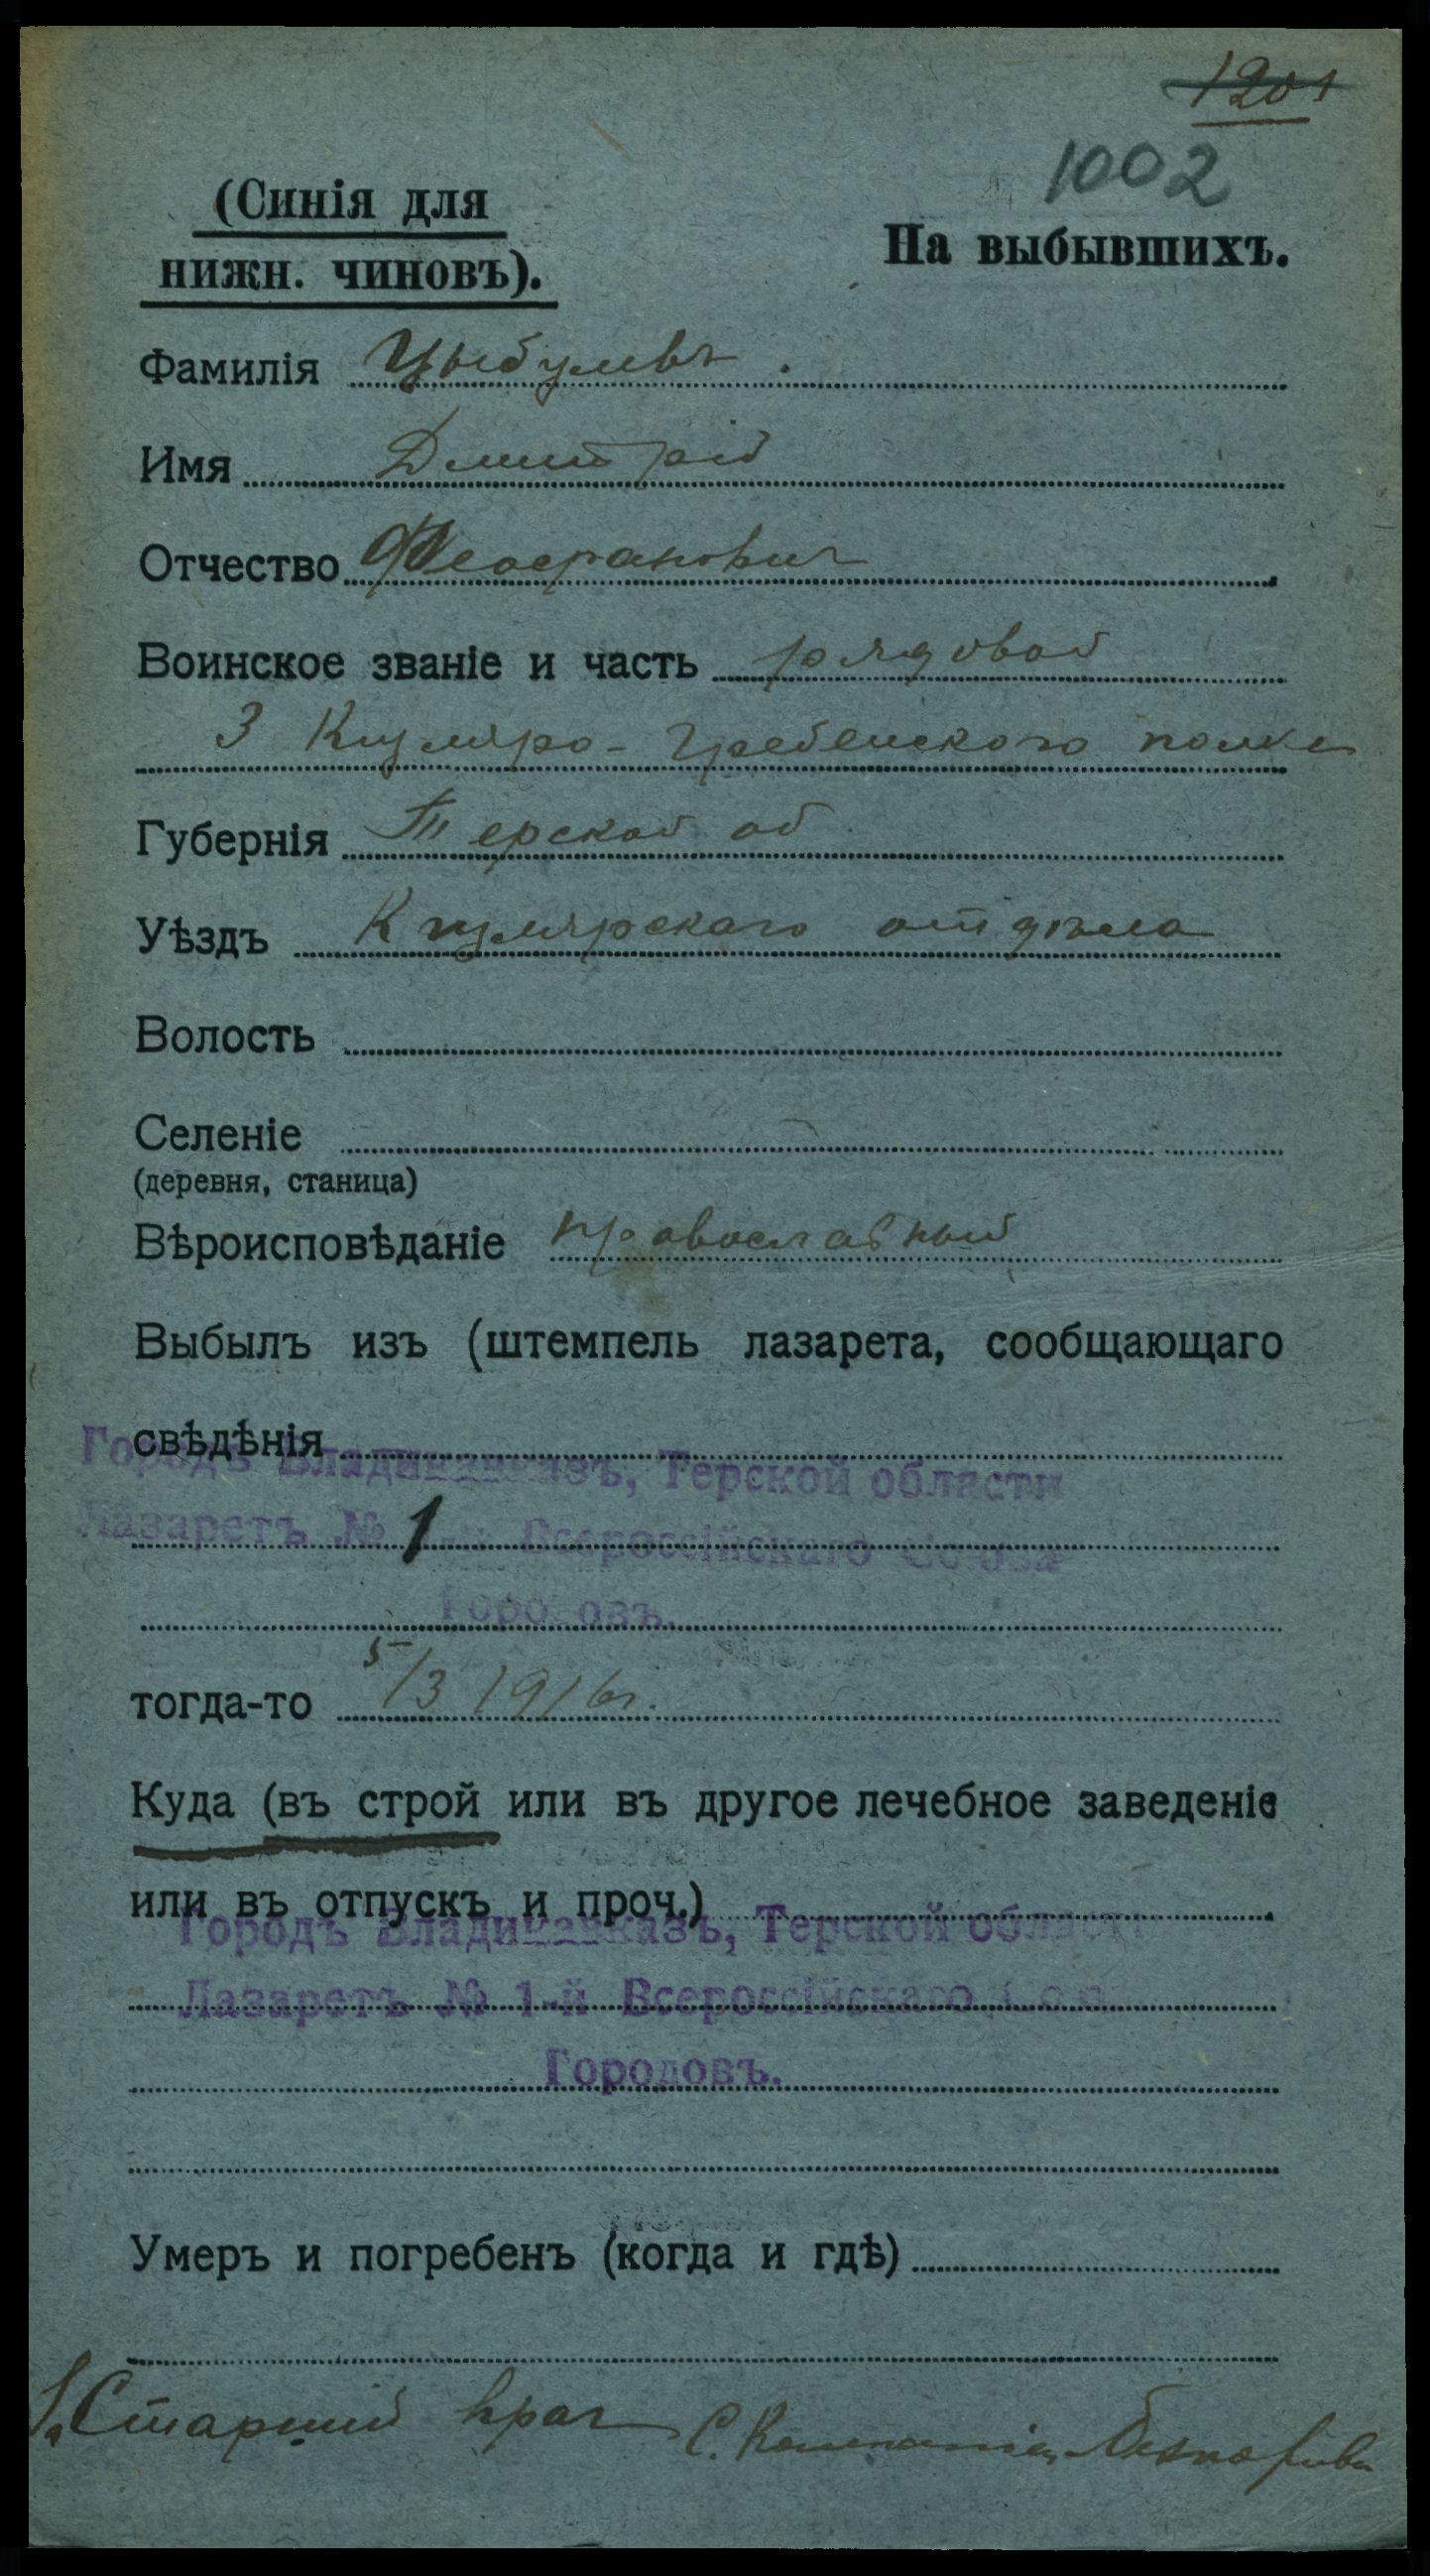 1201
1002
(Синія для
нижн. чиновъ).
На выбывшихъ.
Фамилія Цыбулевъ.
Имя Дмитрій
Отчество
Воинское званіе и часть рядовой
3 Кизляро-Гребенского полка
Губернія Терской об
Уѣздъ Кизлярскаго отдѣла
Волость
Селеніе
(деревня, станица)
Вѣроисповѣданіе православный
Выбылъ изъ (штемпель лазарета, сообщающаго
свѣдѣнія
Городъ Владикавказъ, Терской области
Лазаретъ № 1 Всероссійскаго Союза
Городовъ.
тогда-то 5/3 1916 г.
Куда (въ строй или въ другое лечебное заведеніе
или въ отпускъ и проч.)
Городъ Владикавказъ, Терской области
Лазаретъ № 1-й Всероссійскаго Союза
Городовъ.
Умеръ и погребенъ (когда и гдѣ)
Старшій врач